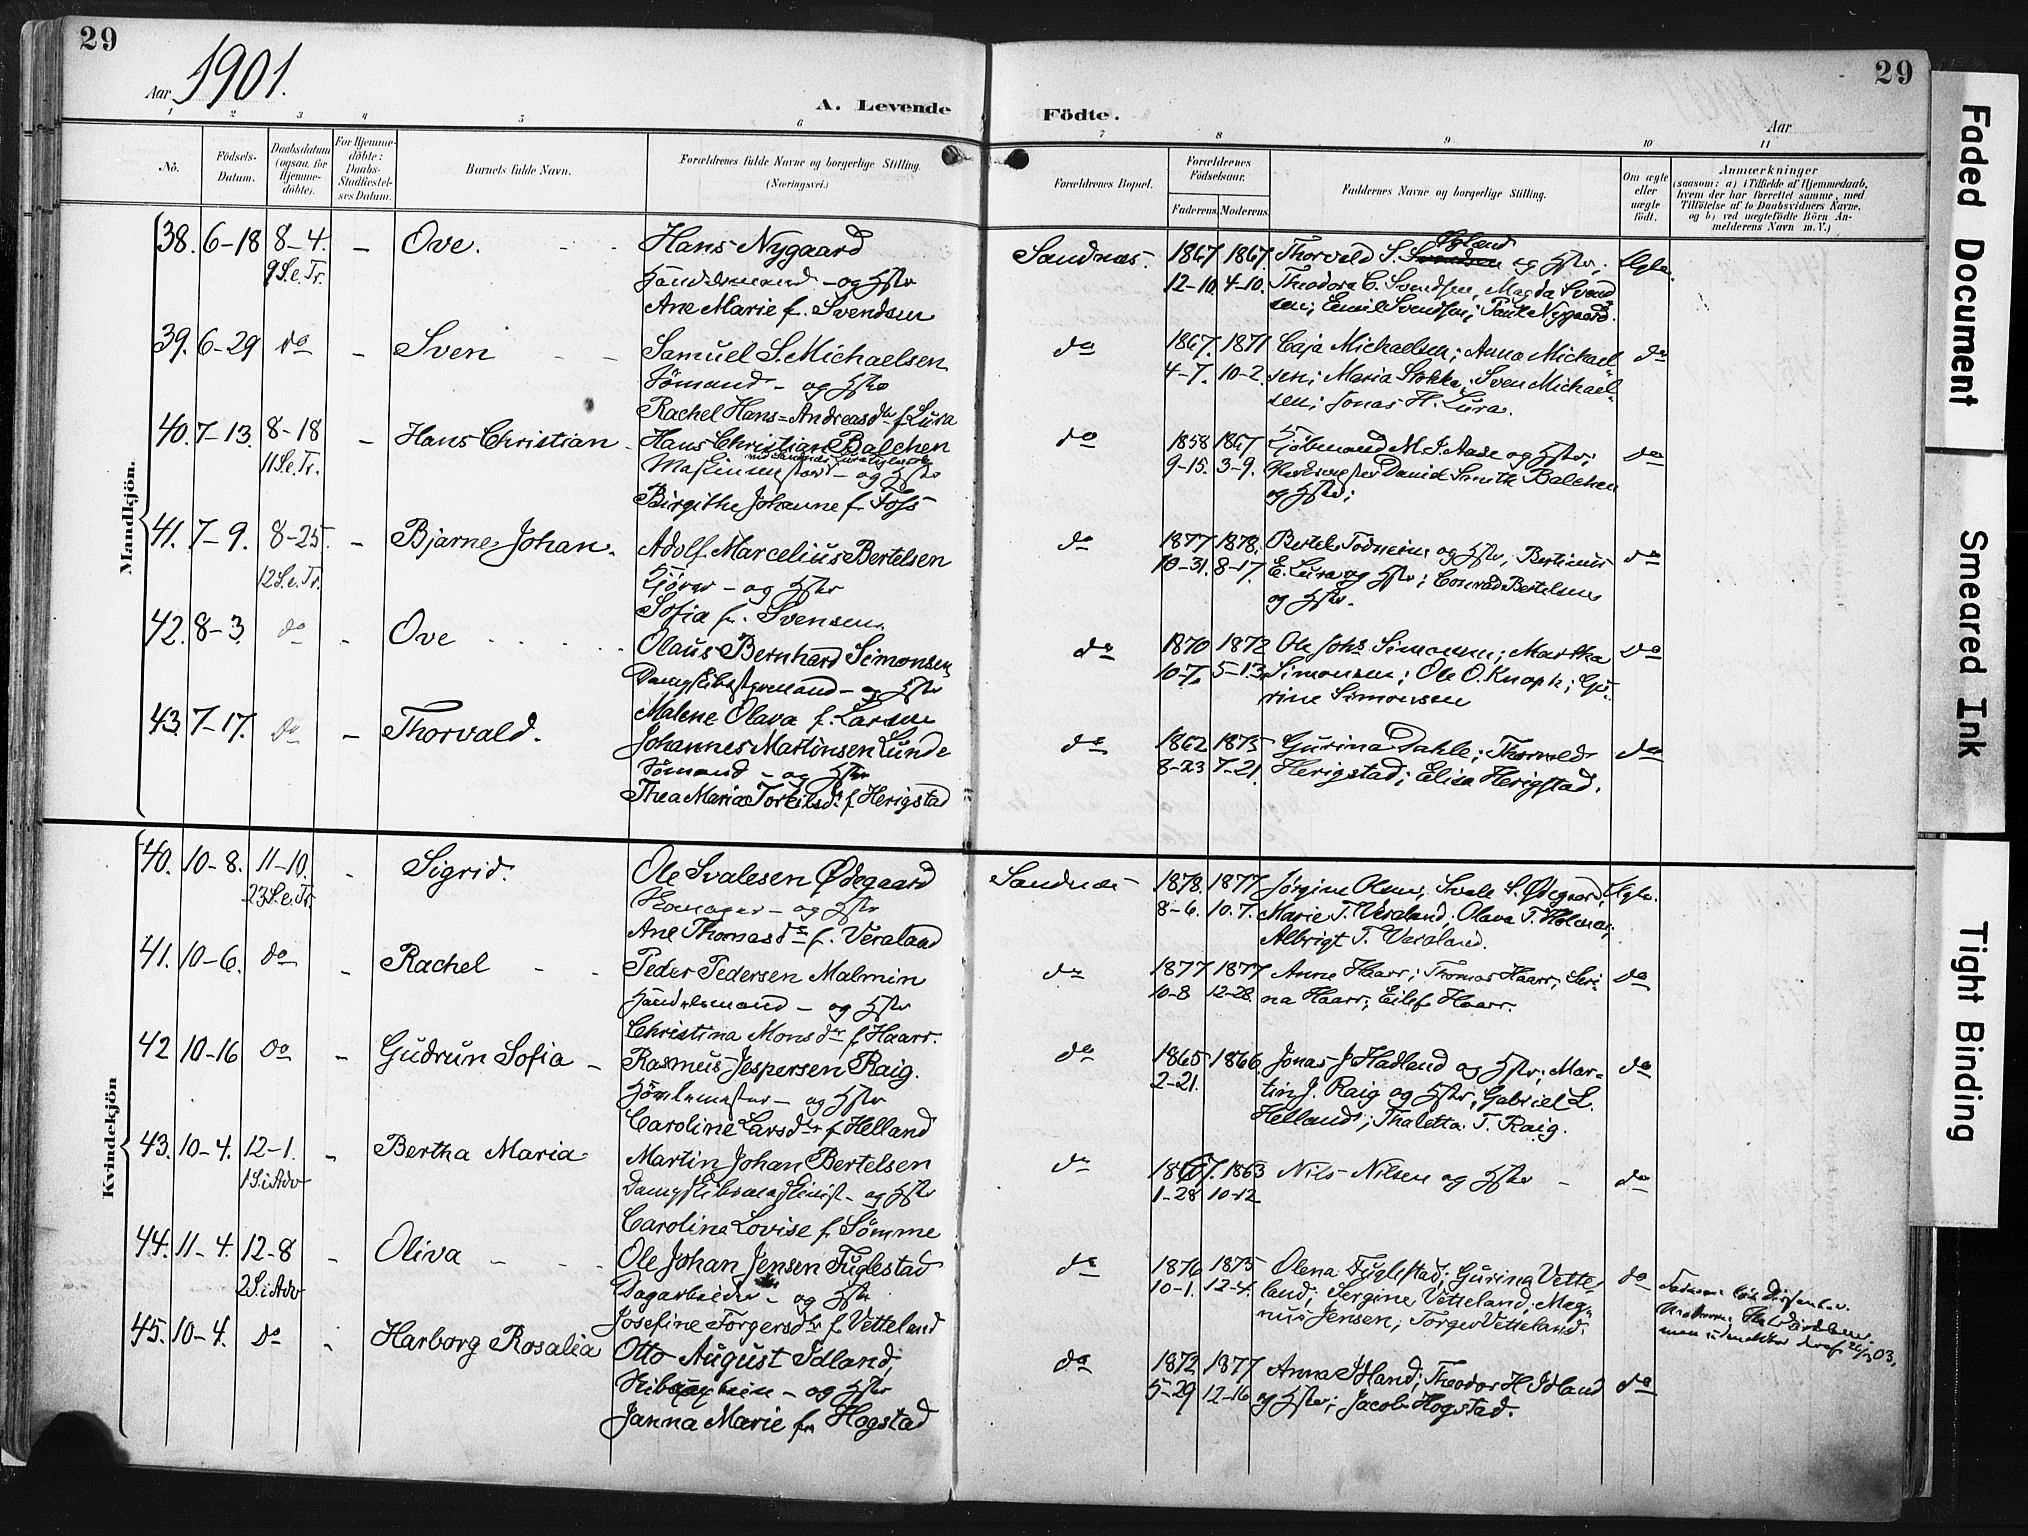 29
Aar 1901.
A. Levende
Födte.
29
Aar
1 2 3 4 5 6 7 8 9 10 11
No.
Födsels-Datum.
Daabsdatum (ogsaa for Hjemmedöbte).
For Hjemmedöbte: Daabs-Stadfæstelses Datum.
Barnets fulde Navn.
Forældrenes fulde Navne og borgerlige Stilling.
(Næringsvei.)
Forældrenes Bopæl.
Forældrenes Födselsaar.
Faderens. Moderens.
Faddernes Navne og borgerlige Stilling.
Om ægte eller uægte födt.
Anmærkninger
(saasom: a) i Tilfælde af Hjemmedaab, hvem der har forrettet samme, med Tilföielse af to Daabsvidners Navne. og b) ved uægtefödte Börn Anmelderens Navn m. V.)
Mandkjön.
38. 6-18 8-4. - Ove. Hans Nygaard Sandnæs. 1867 1867. Thorvald S. Svendsen og Hstr; Ægte.
9 S.e.Tr. Handelsmand - og Hstr 12-10 4-10. Theodora C. Svendsen, Magda Svend
Ane Marie f. Svendsen sen; Emil Svendsen; Nygaard.
39. 6-29 do - Sven Samuel S. Michaelsen do 1867. 1871 Caja Michaelsen; Anna Michael do
Sömand - og Hstr 4-7. 10-2. sen; Maria Stokka; Sven Michael-
Rachel Hans=Andreasdtr f. Lura sen; Jonas H. Lura.
40. 7-13. 8-18 - Hans Christian Hans Christian Balchen do 1858 1867 Kjöbmand M. J. Aase og Hstr; do
11 S.e.Tr. Maskinmester - og Hstr 9-15. 3-9. David Smith Balchen
Birgithe Johanne f. Foss og Hstr;
41. 7-9. 8-25. - Bjarne Johan. Adolf Marcelius Bertelsen do 1877 1878. Bertel Todneim og Hstr, Bertinus do
12 S.e.Tr. Kjører - og Hstr 10-31. 8-17. E. Lura og Hstr; Conrad Bertelsen
Sofia f. Svensen. og Hstr.
42. 8-3. do - Ove Olaus Bernhard Simonsen do 1870 1872 Ole Johs. Simonsen; Martha do
og Hstr 10-7. 5-13 Simonsen; Ole O. Knoph; Gu-
Malene Olava f. Larsen rine Simonsen
43. 7-17. do - Thorvald. Johannes Martinsen Lunde do 1862 1875 Gurina Dahle; Thorvald do
Sömand - og Hstr 8-23 7-21. Herigstad; Elisa Herigstad.
Thea Maria Torkilsdr. f. Herigstad
Kvindekjön
40. 10-8. 11-10. - Sigrid. Ole Svalesen Ødegaard Sandnæs 1878. 1877 Jørgine Olsen, Svale S. Ødegaard, Ægte.
23 S.e.Tr. Skomager - og Hstr 8-6. 10-7. Marie T. Veraland; Olava T. Holmen;
Ane Thomasdtr f. Veraland Albrigt T. Veraland.
41. 10-6. do - Rachel Peder Pedersen Malmin do 1877 1877 Anne Haarr; Thomas Haarr, Seri- do
Handelsmand - og Hstr 10-8 12-28. na Haarr; Eilef Haarr.
Christina Monsdtr f. Haarr.
42 10-16 do - Gudrun Sofia Rasmus Jespersen Raig. do 1865 1866 Jonas J Hadland og Hstr; Mar- do
og Hstr 2-21. tin J. Raig og Hstr; Gabriel L.
Caroline Larsdtr f. Helland Helland; Thaletta T. Raig.
43. 10-4. 12-1. - Bertha Maria Martin Johan Bertelsen do 1867. 1863 Nils Nilsen og Hstr - do
1 S.i Adv Dampskibsmaskinist - og Hstr 1-28 10-12
Caroline Lovise f. Sömme
44. 11-4. 12-8 - Oliva Ole Johan Jensen Fuglestad do 1876 1875 Olena Fuglestad; Gurina Vette- do
2 S.i Adv Dagarbeider - og Hstr 10-1. 12-4. land; Sergine Vetteland, Mag-
Josefine Torgersdtr f. Vetteland nus Jensen; Torger Vetteland.
45. 10-4. do - Harborg Rosalia Otto August Idland, do 1872 1877 Anna Idland; Theodor H. Idland do
og Hstr 5-29 12-16 og Hstr; Jacob Hogstad.
Janna Marie f. Hogstad
Faded Document
Smeared Ink
Tight Binding